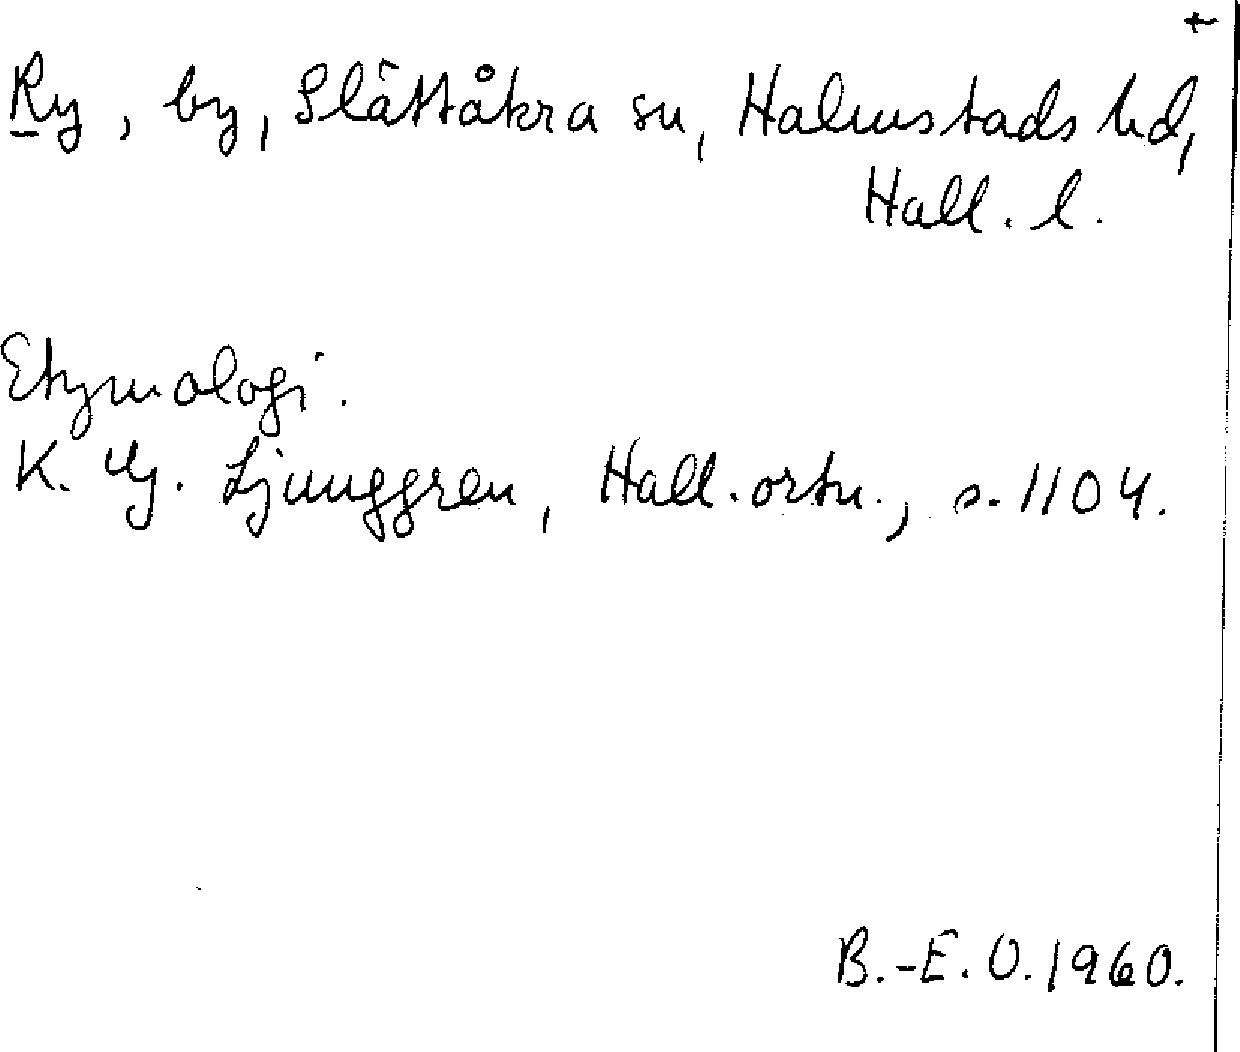 t
Ry, by, Slättåkra sn, Halmstads hd,
Hall. l.
Etymologi.
K. G. Ljunggren, Hall. ortn., s. 1104.
B.-E. O. 1960.